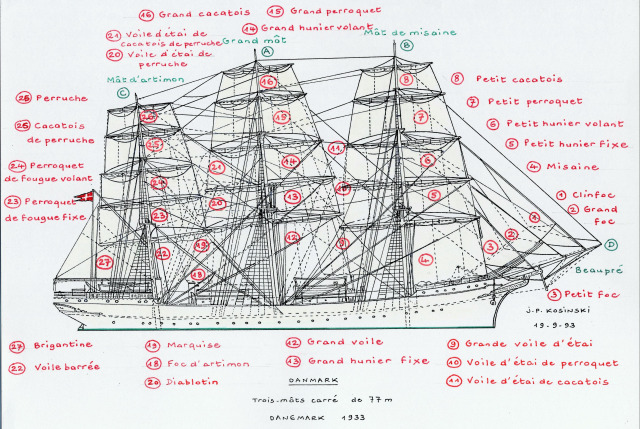 16 Grand cacatois 15 Grand perroquet
21 Voile d'étai de cacatois de perruche
14 Grand hunier volant
Grand mât
Mât de misaine
20 Voile d'étai de perruche
A
B
Mât d'artimon
C
26 Perruche
25 Cacatois de perruche
24 Perroquet de fougue volant
23 Perroquet de fougue fixe
8 Petit cacatois
7 Petit perroquet
6 Petit hunier volant
5 Petit hunier fixe
4 Misaine
1 Clinfoc
2 Grand foc
D
Beaupré
3 Petit foc
16
8
26
15
7
25
21
14
11
6
24
13
5
20
23
1
22
19
12
9
2
3
27
18
4
J.P. KOSINSKI
19-9-93
27 Brigantine
22 Voile barrée
19 Marquise
18 Foc d'artimon
20 Diablotin
12 Grand voile
13 Grand hunier fixe
9 Grande voile d'étai
10 Voile d'étai de perroquet
11 Voile d'étai de cacatois
DANMARK
Trois-mâts carré de 77m
DANEMARK 1933